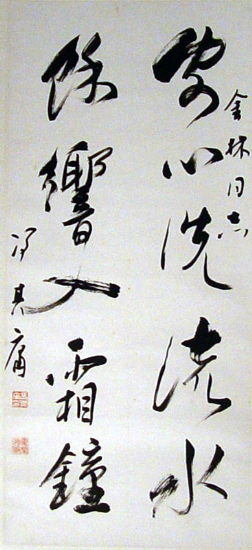 金林同志
客心洗流水
餘響入霜鐘
馮其庸